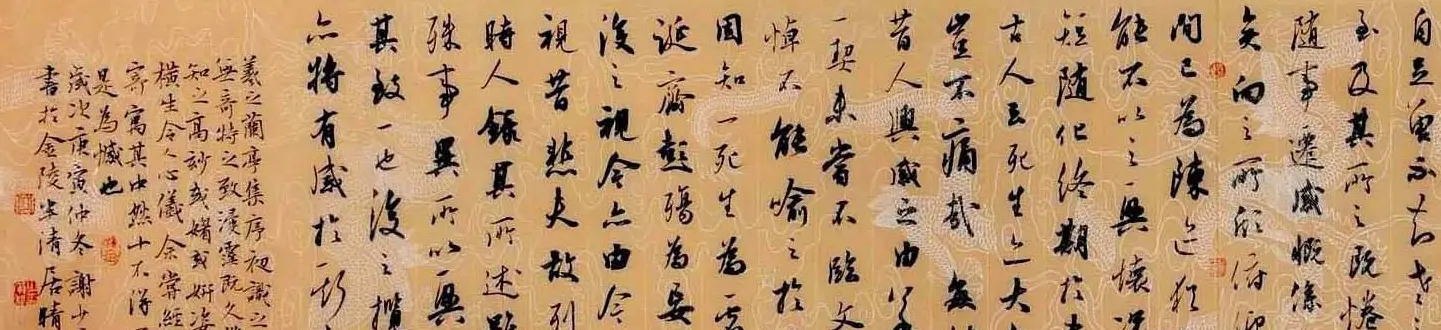 自足曾不知老之
至及其所之既惓
随事遷感慨係
矣向之所欣俯仰
間已為陳迹猶
能不以之興懷況
短随化終期於
古人云死生亦大
豈不痛哉每
昔人興感之由
一契未嘗不臨文
悼不能喻之於
固知一死生為虛
誕齊彭殤為妄
後之視今亦由今
視昔悲夫故列
時人錄其所述雖
殊事異所以興
其致一也後之攬
亦将有感於斯
羲之蘭亭集序初識之
無奇特之致浸霪既久
知之高妙或媚或妍姿
橫生令人心儀余嘗經
寄寓其中然十不得
是為憾也
歲次庚寅仲冬謝少
書於金陵清居晴